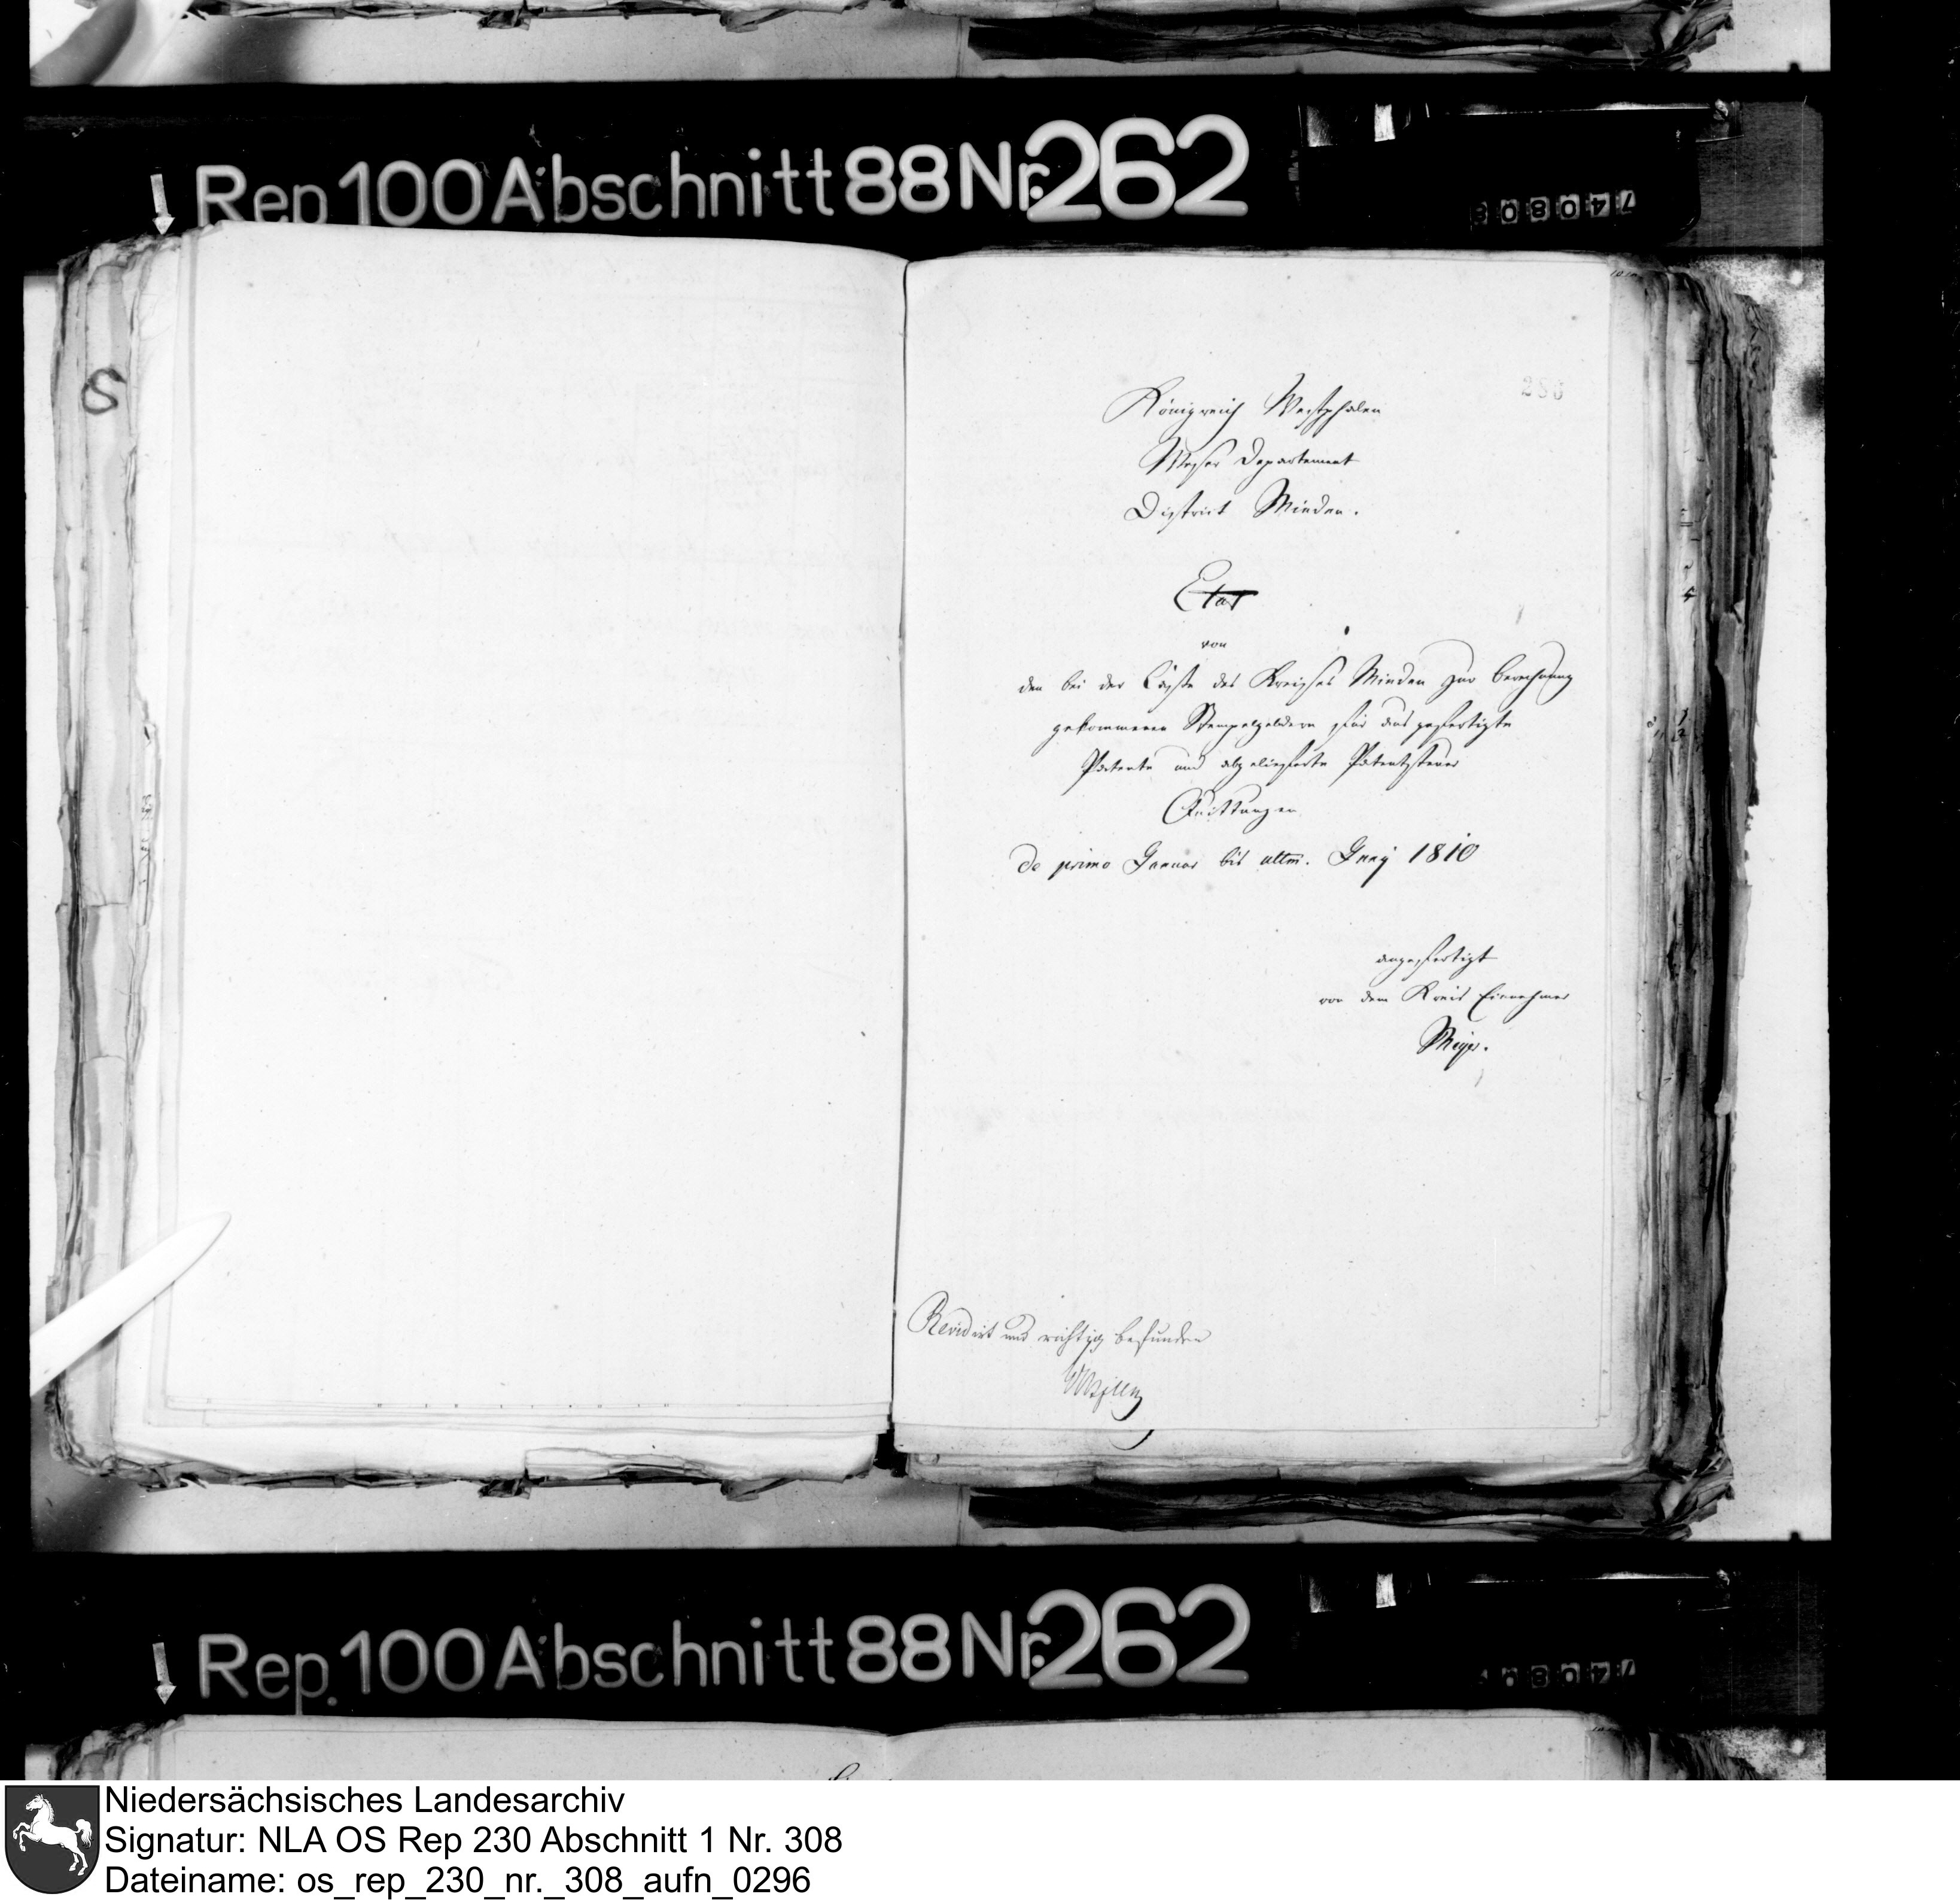 Rep 100 Abschnitt 88 Nr. 262
740808
S
286
Königreich Westphalen
Weser Departement
District Minden.
Etat
von
den bei der Casse des Kreises Minden zur Berechnung
gekommenen Stempelgeldern für aus gefertigte
Patente und abgelieferte Patentsteuer
Quittungen
de primo Januar bis ultm. Juny 1810
angefertigt
von dem Kreis Einnehmer
Meyer.
Revidirt und richtig befunden
Rep. 100 Abschnitt 88 Nr. 262
Niedersächsisches Landesarchiv
Signatur: NLA OS Rep 230 Abschnitt 1 Nr. 308
Dateiname: os_rep_230_nr._308_aufn_0296